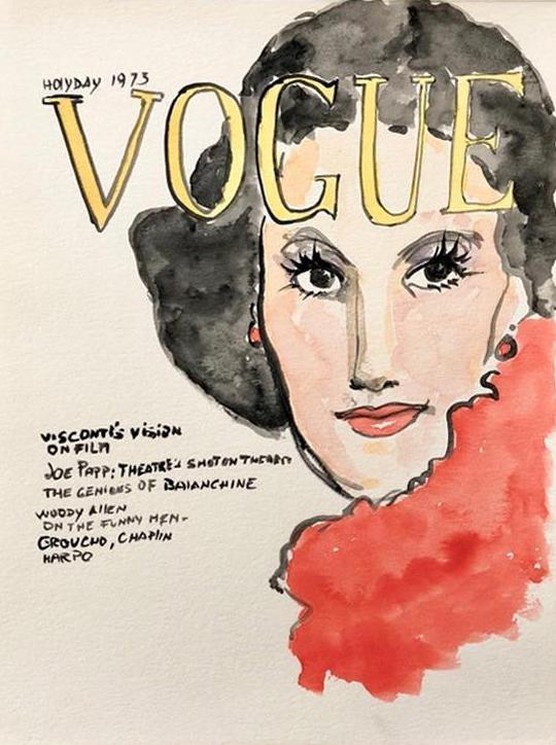 HOlYDAY 1973
VOGUE
VISCONTI'S VISION
ON FILM
JOE PAPP: THEATRE'S SHOT ON THEATRE
THE GENIOUS OF BAIANCHINE
WOODY AllEN
ON THE FUNNY MEN.
GROUCHO, CHAPlIN
HARPO